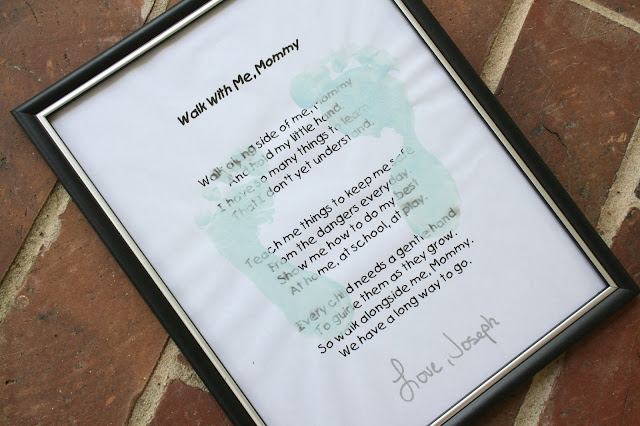 Walk With Me, Mommy
Walk along side of me, Mommy
And hold my little hand.
I have so many things to learn
That I don't yet understand.
Teach me things to keep me safe
From the dangers everyday.
Show me how to do my best
At home, at school, at play.
Every child needs a gentle hand
To guide them as they grow.
So walk alongside me, Mommy.
We have a long way to go.
Love, Joseph